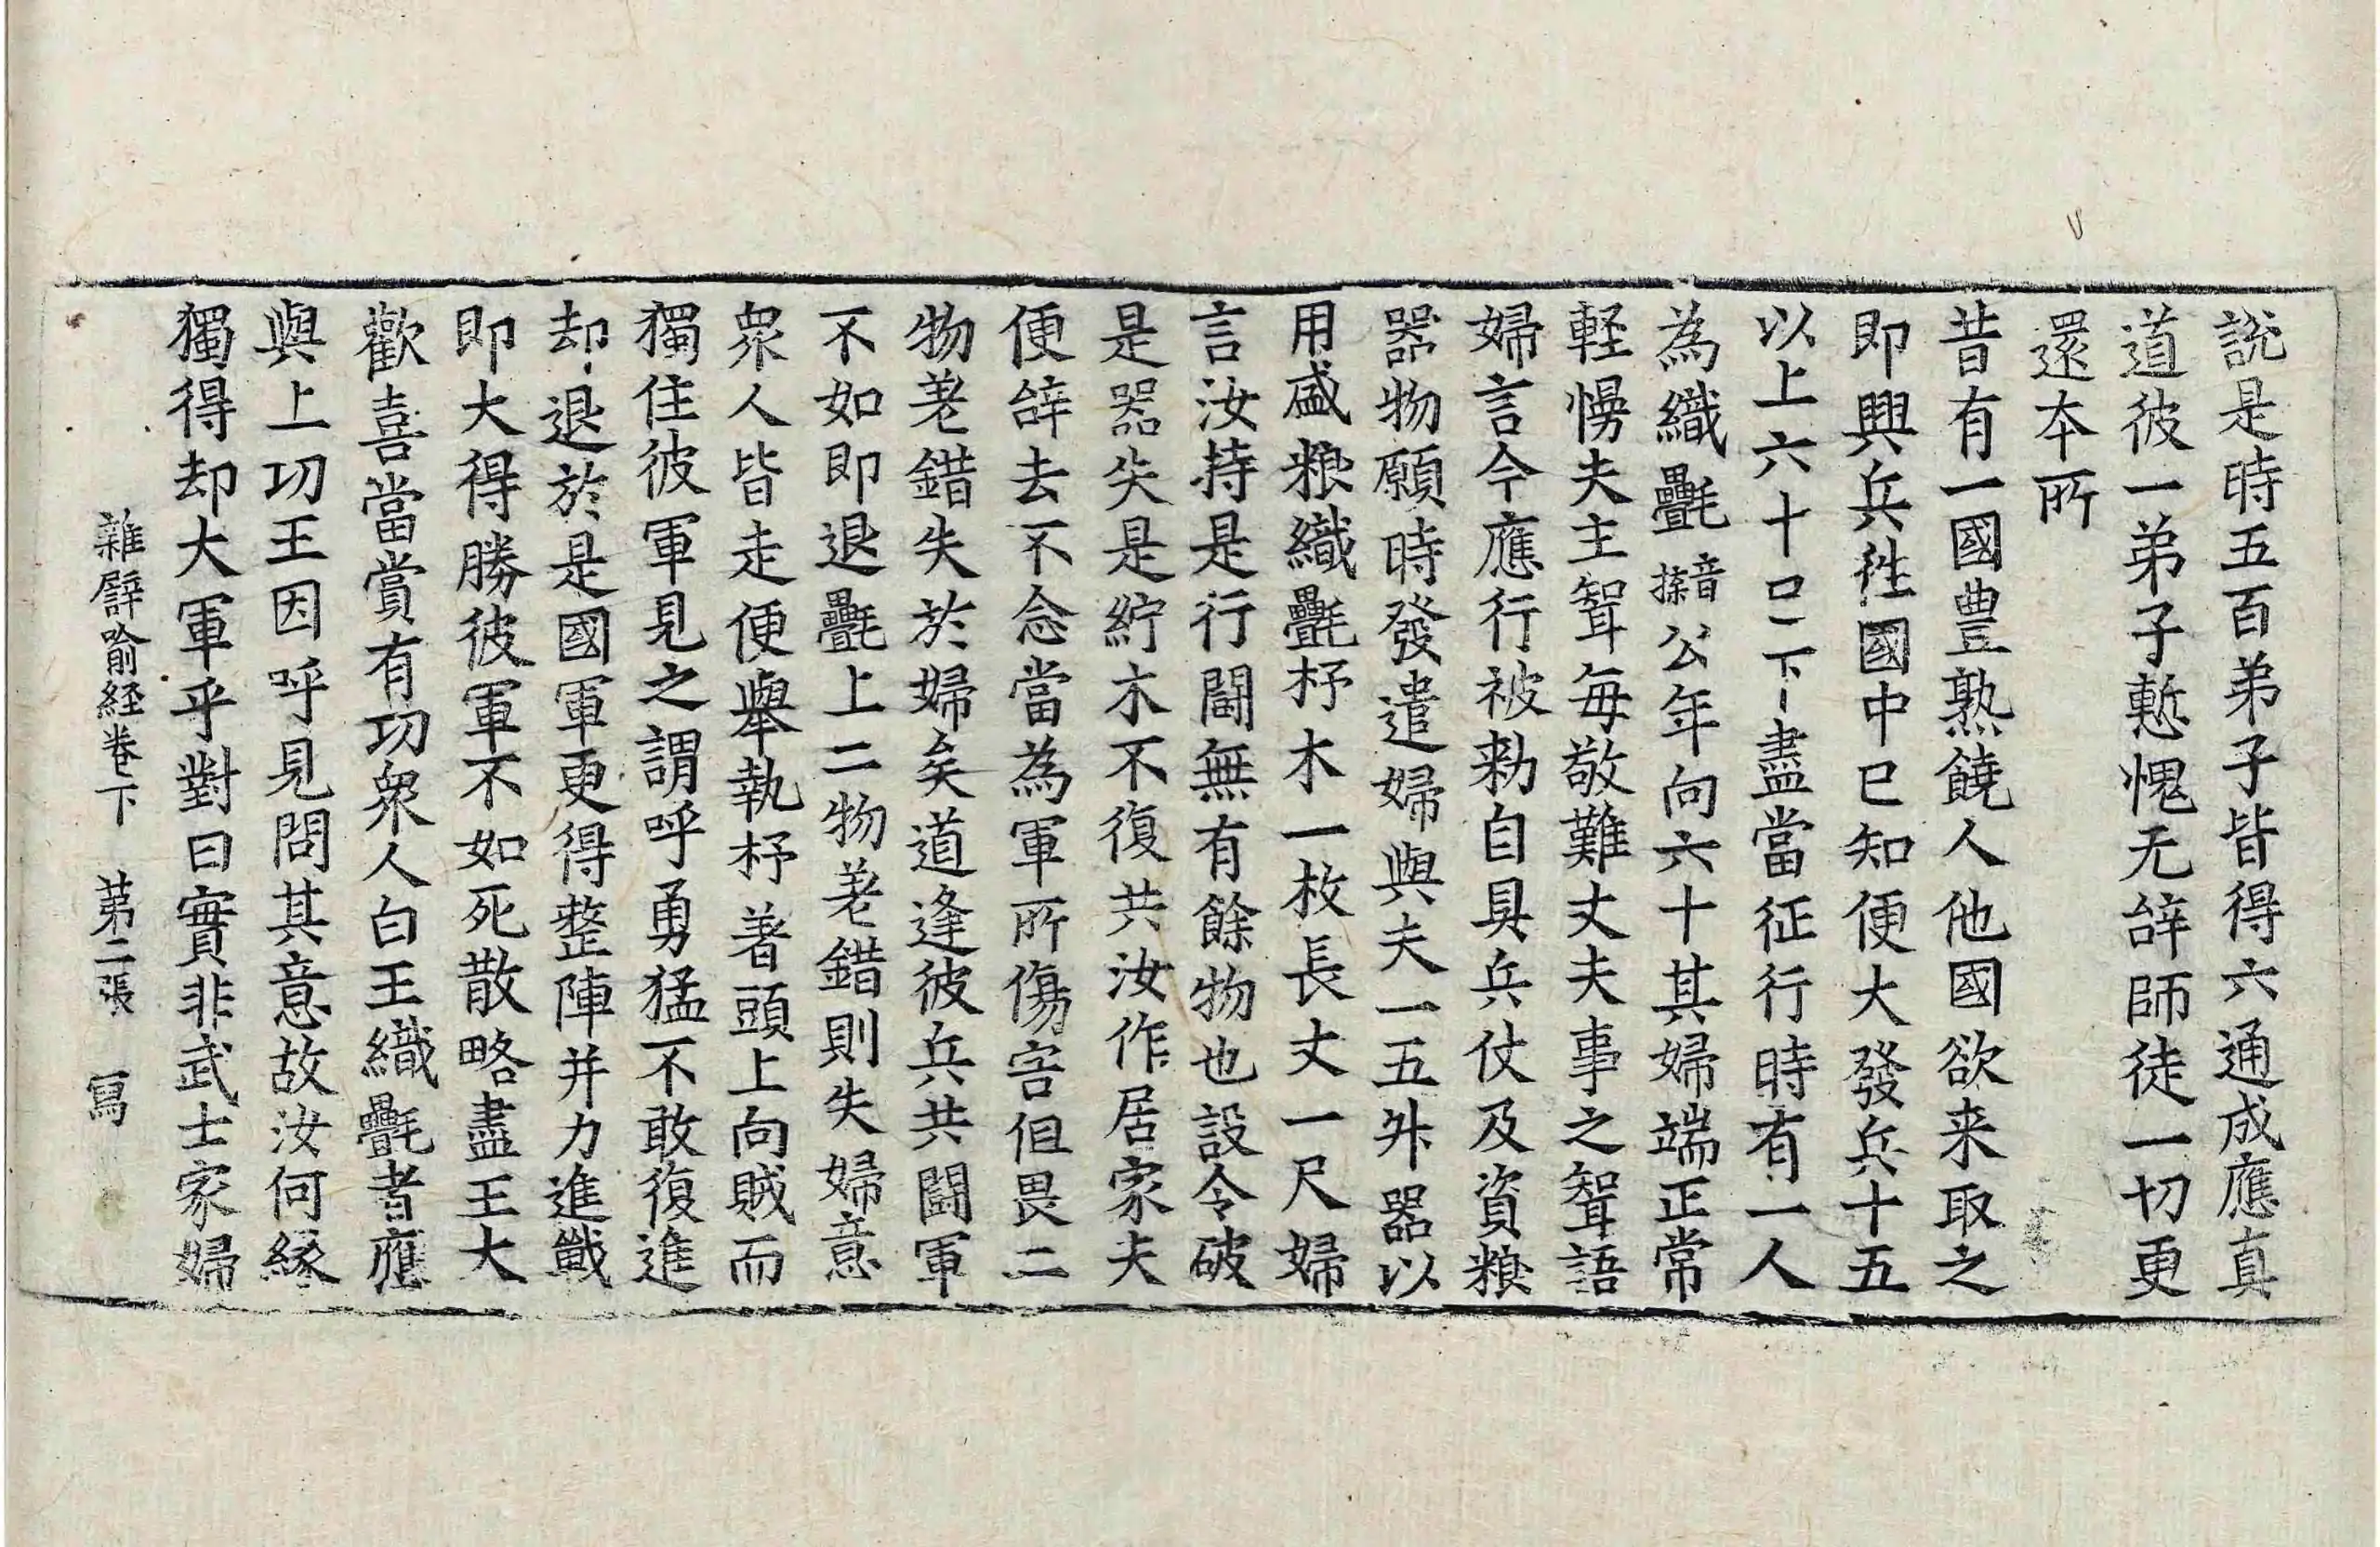 說是時五百弟子皆得六通成應真
道彼一弟子慙愧无辝師徒一切更
還本所
昔有一國豊熟饒人他國欲来取之
即興兵徃國中已知便大發兵十五
以上六十口二下盡當征行時有一人
為織㲲音牒公年向六十其婦端正常
軽慢夫主聟每敬難丈夫事之聟語
婦言今應行被勑自具兵仗及資粮
器物願時發遣婦與夫一五舛器以
用盛粮織㲲杼木一枚長丈一尺婦
言汝持是行鬪無有餘物也設令破
是器失是紵木不復共汝作居家夫
便辝去不念當為軍所傷害但畏二
物差錯失於婦矣道逢彼兵共鬪軍
不如即退㲲上二物差錯則失婦意
衆人皆走便舉執杼著頭上向賊而
獨住彼軍見之謂呼勇猛不敢復進
却退於是國軍更得整陣并力進戰
即大得勝彼軍不如死散略盡王大
歡喜當賞有功衆人白王織㲲者應
與上功王因呼見問其意故汝何縁
獨得却大軍乎對曰實非武士家婦
雜譬喻経卷下 第二張 寫